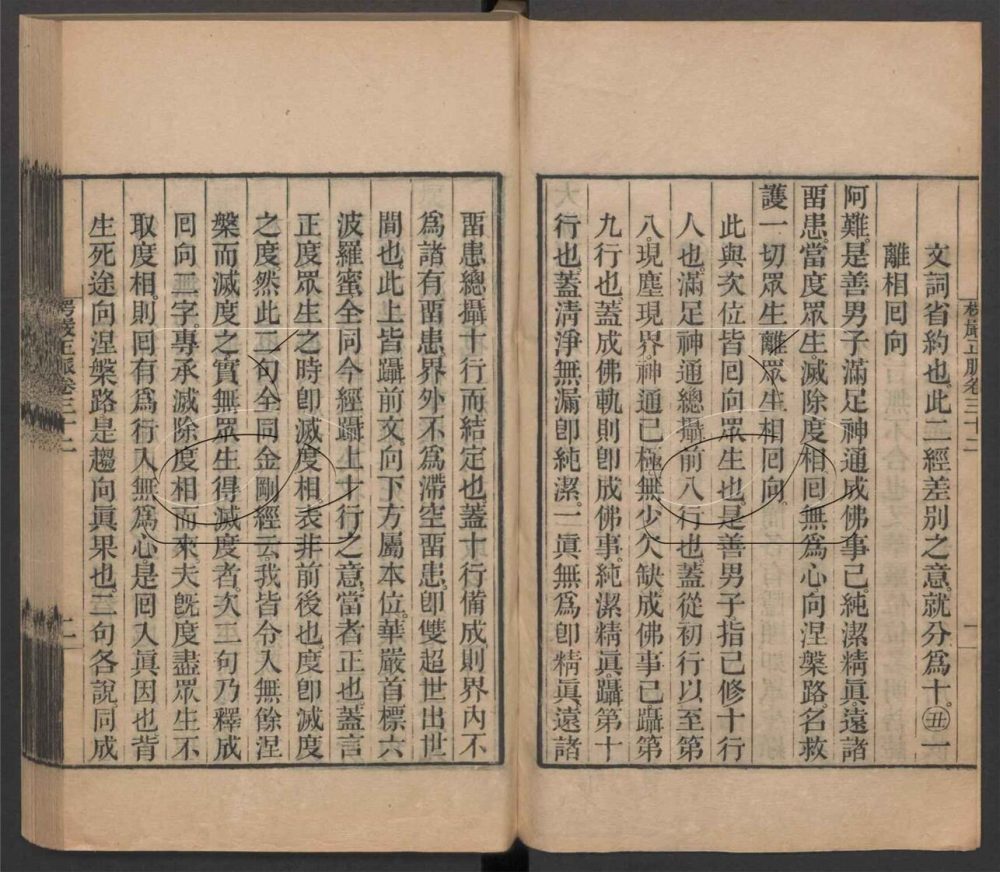 文詞省約也。此二經差別之意。就分爲十。丑一
離相回向
阿難。是善男子滿足神通成佛事已。純潔精眞。遠諸
畱患。當度眾生。滅除度相。回無爲心向涅槃路。名救
護一切眾生離眾生相回向。
此與次位皆回向眾生也。是善男子。指已修十行
人也。滿足神通總攝前八行也。蓋從初行以至第
八。現塵現界。神通已極。無少欠缺。成佛事已。躡第
九行也。蓋成佛軌則。卽成佛事。純潔精眞。躡第十
行也。蓋清淨無漏卽純潔。一眞無爲卽精眞。遠諸
畱患。總攝十行而結定也。蓋十行備成。則界內不
爲諸有畱患。界外不爲滯空畱患。卽雙超世出世
間也。此上皆躡前文。向下方屬本位。華嚴首標六
波羅蜜。全同今經躡上十行之意。當者正也。蓋言
正度眾生之時。卽滅度相。表非前後也。度卽滅度
之度。然此二句全同金剛經云。我皆令入無餘涅
槃而滅度之。實無眾生得滅度者。次二句乃釋成
回向二字。專承滅除度相而來。夫旣度盡眾生。不
取度相。則回有爲行入無爲心。是回入眞因也。背
生死途。向涅槃路。是趨向眞果也。二句各說。同成
楞嚴正脈卷三十二
楞嚴正脈卷三十二